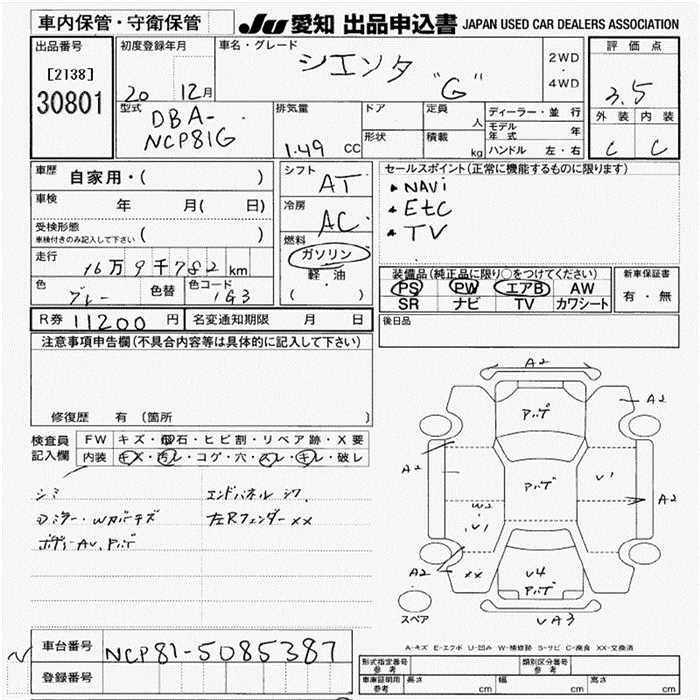 車内保管・守衛保管
JU 愛知 出品申込書 JAPAN USED CAR DEALERS ASSOCIATION
出品番号
[2138]
30801
初度登録年月
20 12月
車名・グレード
シエンタ "G"
2WD
・
4WD
評価点
3.5
外装 内装
C C
型式
DBA-
NCP81G
排気量
1.49 CC
ドア
形状
定員
人
積載
kg
ディーラー・並行
モデル年式 年
ハンドル 左・右
車歴
自家用・( )
車検
年 月( 日)
受検形態
車検付きのみ記入して下さい ( )
走行
16万9千782km
色
グレー
色替
色コード
1G3
シフト
AT
冷房
AC
燃料
ガソリン
軽・油
( )
セールスポイント(正常に機能するものに限ります)
・NAVi
・EtC
・TV
装備品(純正品に限り○をつけてください)
PS PW エアB AW
SR ナビ TV カワシート
新車保証書
有・無
R券 11200 円 名変通知期限 月 日
後日品
注意事項申告欄(不具合内容等は具体的に記入して下さい)
修復歴 有 〔箇所 〕
検査員
記入欄
FW キズ・飛石・ヒビ割・リペア跡・X要
内装 キズ・汚レ・コゲ・穴・スレ・キレ・破レ
シミ
エンドパネル シワ
左Rフェンダー xx
A2
アバダ
A2
A2
アバダ
V1
A2
W2
V1
A2
xx
V4
アバダ
VA3
スペア
A-キズ E-エクボ U-凹み W-補修跡 S-サビ C-腐食 XX-交換済
車台番号
NCP81-5085387
登録番号
形式指定番号
参考
類別区分番号
参考
車庫証明用
参考
長さ cm
幅 cm
高さ cm